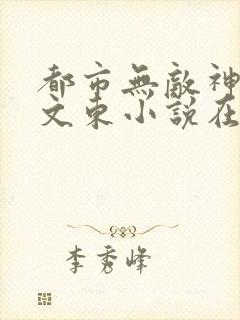 都市無敵神
文東小說在
李秀峰